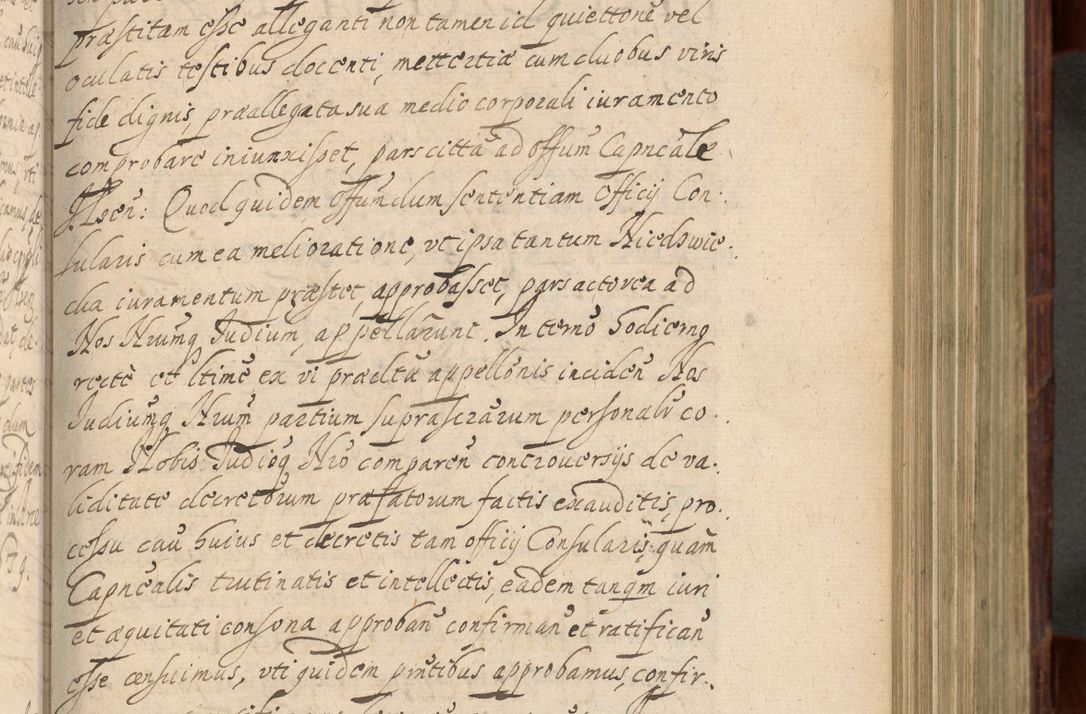 præstitam esse alleganti non tamen id quiettone vel
oculatis testibus docenti, mettertiæ cum duobus viris
fide dignis, præallegata sua medio corporali iuramento
comprobare iniunxisset, pars citta ad offum Capncale
Quod quidem offundum sententiam Officij Con:
sularis cum ea melioratione, vt ipsa tantum Niedzwie:
cka iuramentum præstet, approbasset, pars actorea ad
Nos Nrumq Judium, appellarunt. In termo hodierno
recte et ltime ex vi prædtæ appellonis inciden Nos
Judiumq Nrum partium suprascrarum personalr co:
ram Nobis Judioq Nro comparen controuersijs de va:
liditate decretorum præfatorum factis exauditis, pro:
cessu cau huius et decretis tam officij Consularis, quam
Capncalis trutinatis et intellectis, eadem tanqm iuri
et æquitati consona approban confirman et ratifican
esse censuimus, vti quidem pntibus approbamus, confir: